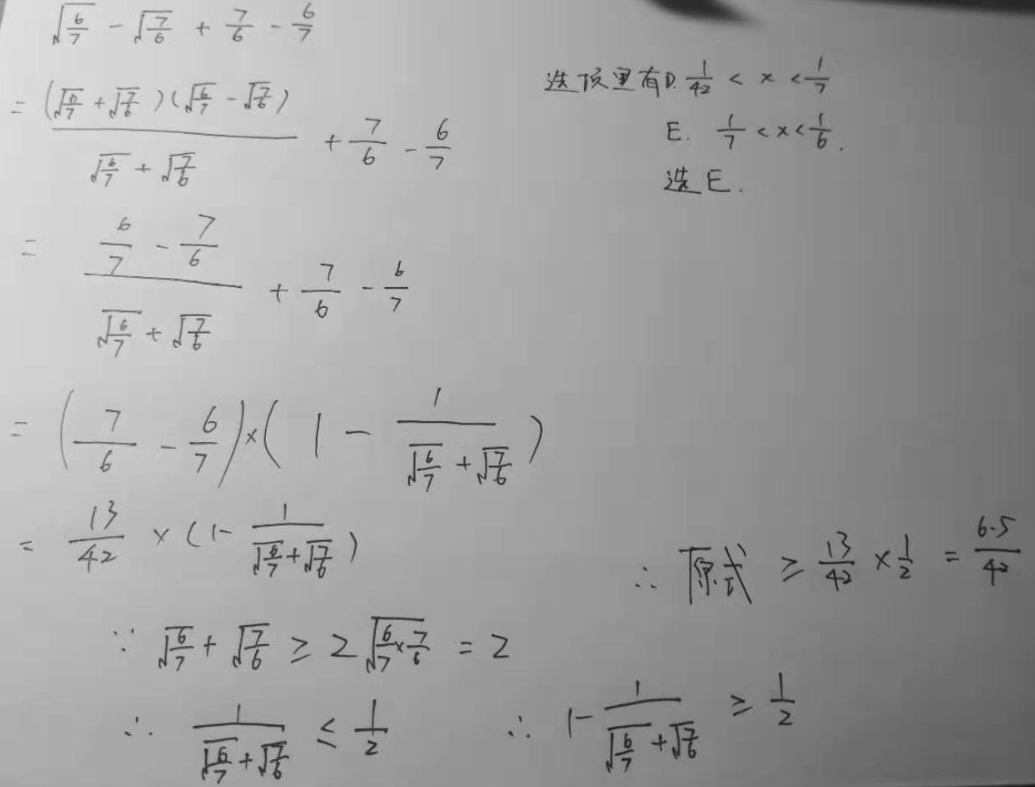 √(6/7) - √(7/6) + 7/6 - 6/7
= (√(6/7) + √(7/6))(√(6/7) - √(7/6)) / (√(6/7) + √(7/6)) + 7/6 - 6/7
= (6/7 - 7/6) / (√(6/7) + √(7/6)) + 7/6 - 6/7
= (7/6 - 6/7) × (1 - 1/(√(6/7) + √(7/6)))
= 13/42 × (1 - 1/(√(6/7) + √(7/6)))
∵ √(6/7) + √(7/6) ≥ 2√(6/7 × 7/6) = 2
∴ 1/(√(6/7) + √(7/6)) ≤ 1/2
∴ 1 - 1/(√(6/7) + √(7/6)) ≥ 1/2
∴ 原式 ≥ 13/42 × 1/2 = 6.5/42
选项里有D. 1/42 < x < 1/7
E. 1/7 < x < 1/6.
选E.